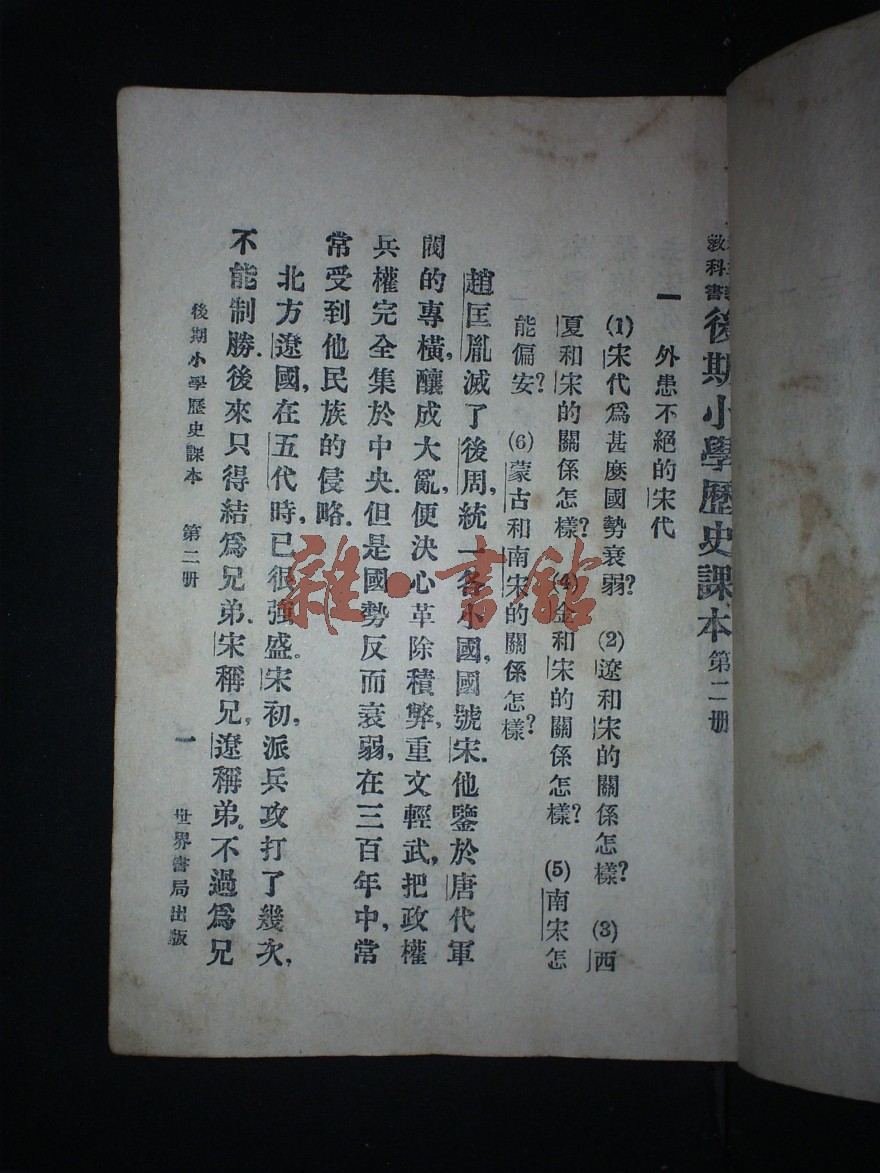 教科書
後期小學歷史課本 第二册
一 外患不絕的宋代
(1)宋代爲甚麼國勢衰弱？ (2)遼和宋的關係怎樣？ (3)西
夏和宋的關係怎樣？ (4)金和宋的關係怎樣？ (5)南宋怎
能偏安？ (6)蒙古和南宋的關係怎樣？
趙匡胤滅了後周，統一各小國，國號宋．他鑒於唐代軍
閥的專橫，釀成大亂，便決心革除積弊，重文輕武，把政權
兵權完全集於中央．但是國勢反而衰弱，在三百年中，常
常受到他民族的侵略．
北方遼國，在五代時，已很強盛。宋初，派兵攻打了幾次，
不能制勝．後來只得結爲兄弟．宋稱兄，遼稱弟。不過爲兄
後期小學歷史課本 第二册 一 世界書局出版
雜·書館